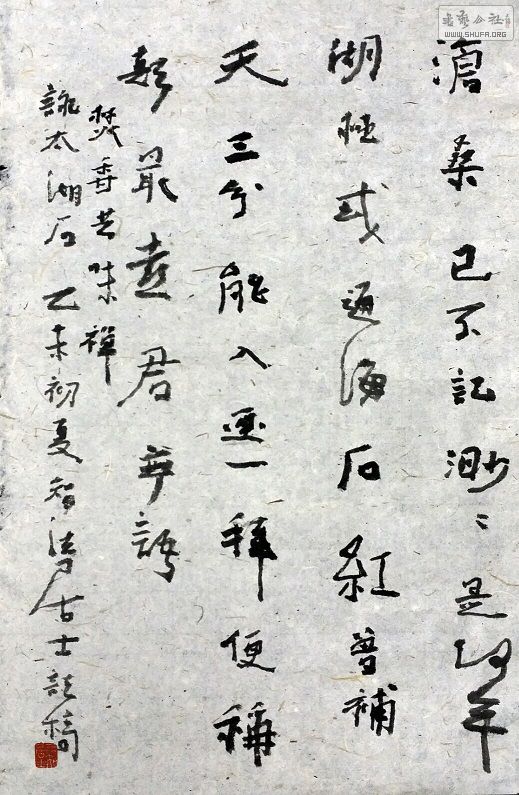 書藝公社
WWW.SHUFA.ORG
滄桑已不記渺々是何年
湖極或通海石紅曾補
天三分能入画一拜便稱
顛最喜君無語
焚香共味禪
詠太湖石 乙未初夏智居士稿